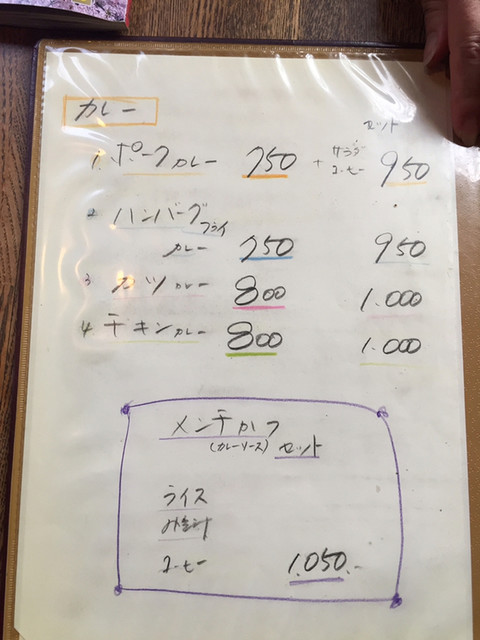 カレー
セット
1. ポークカレー 750 + サラダ コーヒー 950
2 ハンバーグフライ
カレー 750 950
3 カツカレー 800 1.000
4 チキンカレー 800 1.000
メンチかつ
(カレーソース) セット
ライス
コーヒー 1.050.-